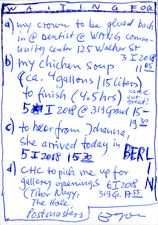 WAITING FOR
a) my crown to be glued back
in @ dentist @ WRKG comm-
unity center 125 Walker St
3 I 2018
b) my chicken soup
(ca. 4 gallons / 15 liters)
to finish (4.5 hrs)
came out great!
5 I 2018 @ 319 Grand 15-
19 30
c) to hear from Johanna!
she arrived today in
5 I 2018 15 30
BERLIN
d) CHC to pick me up for
gallery openings 6 I 2018
(Tibor Nagy, 319 Gr.
The Hole,
Postmasters